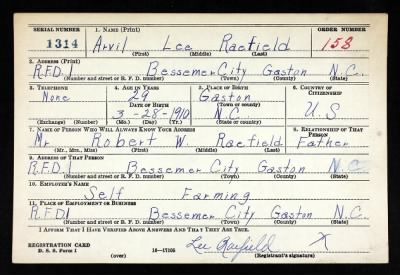 SERIAL NUMBER 1. NAME (Print) ORDER NUMBER
1314 Arvil Lee Raefield 158
(First) (Middle) (Last)
2. ADDRESS (Print)
R.F.D.1 Bessemer City Gaston N.C.
(Number and street or R. F. D. number) (Town) (County) (State)
3. TELEPHONE 4. AGE IN YEARS 5. PLACE OF BIRTH 6. COUNTRY OF CITIZENSHIP
None 29 Gaston
DATE OF BIRTH (Town or county)
3-28-1910 N.C. U.S
(Exchange) (Number) (Mo.) (Day) (Yr.) (State or country)
7. NAME OF PERSON WHO WILL ALWAYS KNOW YOUR ADDRESS 8. RELATIONSHIP OF THAT PERSON
Mr Robert W. Raefield Father
(Mr., Mrs., Miss) (First) (Middle) (Last)
9. ADDRESS OF THAT PERSON
R.F.D.1 Bessemer City Gaston N.C.
(Number and street or R. F. D. number) (Town) (County) (State)
10. EMPLOYER'S NAME
Self Farming
11. PLACE OF EMPLOYMENT OR BUSINESS
R.F.D.1 Bessemer City Gaston N.C.
(Number and street or R. F. D. number) (Town) (County) (State)
I AFFIRM THAT I HAVE VERIFIED ABOVE ANSWERS AND THAT THEY ARE TRUE.
REGISTRATION CARD
D. S. S. Form 1 16—17105 Lee Raefield X
(over) (Registrant's signature)